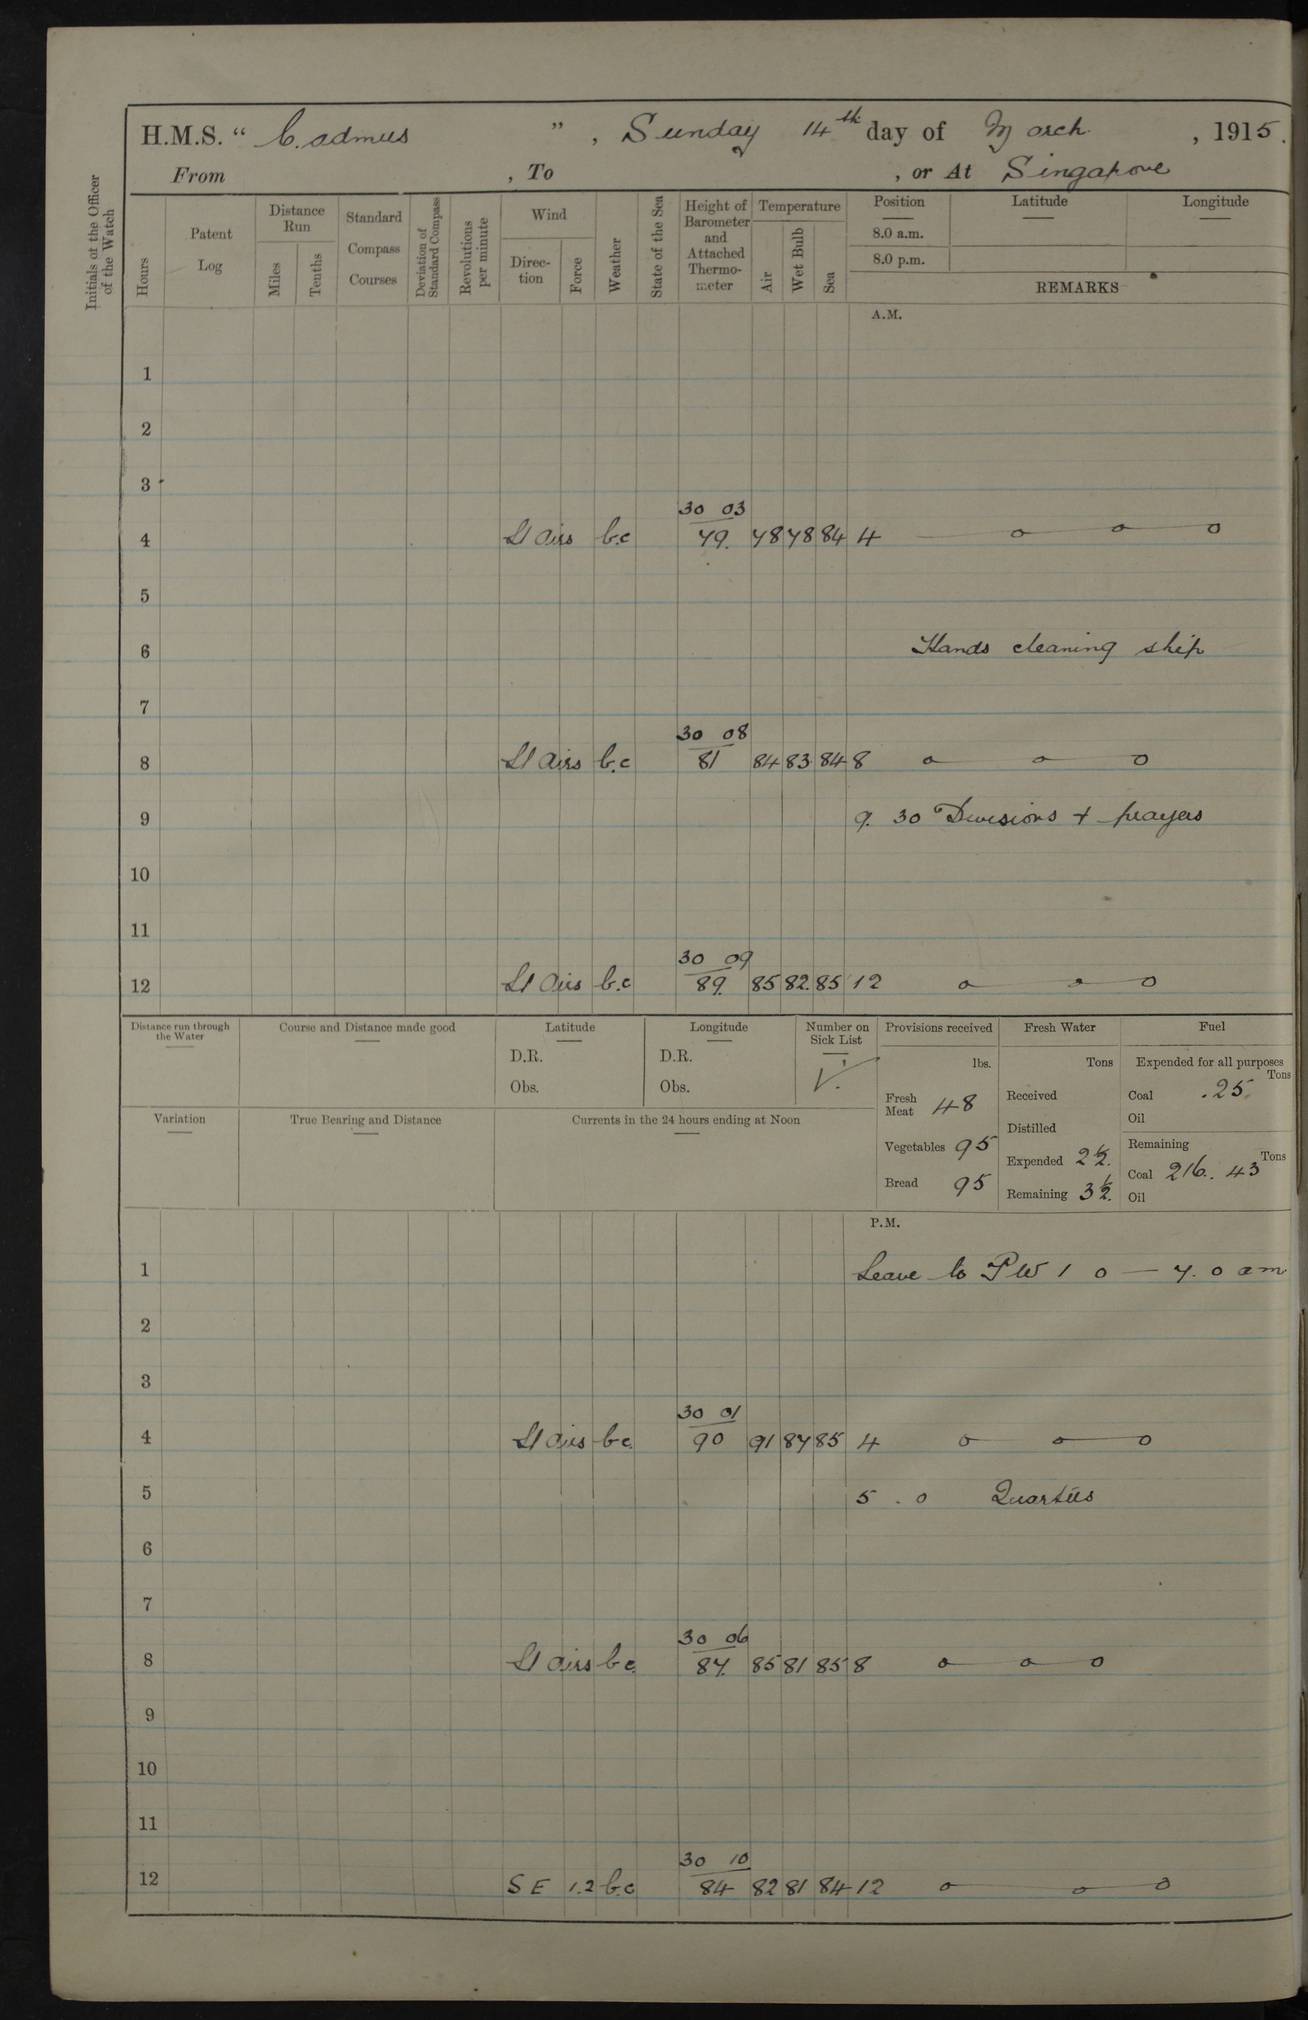 H.M.S. " Cadmus ", Sunday 14th day of March, 1915.
From , To , or At Singapore
Initials of the Officer of the Watch
Hours
Patent Log
Distance Run
Miles
Tenths
Standard Compass Courses
Deviation of Standard Compass
Revolutions per minute
Wind
Direction
Force
Weather
State of the Sea
Height of Barometer and Attached Thermometer
Temperature
Air
Wet Bulb
Sea
Position
Latitude
Longitude
8.0 a.m.
8.0 p.m.
REMARKS
A.M.
1
2
3
30 03
4 Lt airs b.c 79. 78 78 84 4 — o — o — o
5
6 Hands cleaning ship
7
30 08
8 Lt airs b.c 81 84 83 84 8 o — o — o
9 9. 30 Divisions + prayers
10
11
30 09
12 Lt airs b.c 89. 85 82. 85 12 o — o — o
Distance run through the Water
Course and Distance made good
Latitude
D.R.
Obs.
Longitude
D.R.
Obs.
Number on Sick List
Provisions received
lbs.
Fresh Meat 48
Vegetables 95
Bread 95
Fresh Water
Tons
Received
Distilled
Expended 2½.
Remaining 3½.
Fuel
Expended for all purposes
Tons
Coal .25.
Oil
Remaining
Tons
Coal 216. 43
Oil
Variation
True Bearing and Distance
Currents in the 24 hours ending at Noon
P.M.
1 Leave to PW 1 0 — 7. 0 am
2
3
30 01
4 Lt airs b c. 90 91 87 85 4 o — o — o
5 5 . 0 Quarters
6
7
30 06
8 Lt airs b c. 87. 85 81 85 8 o — o — o
9
10
11
30 10
12 S E 1.2 b.c 84 82 81 84 12 o — o — o